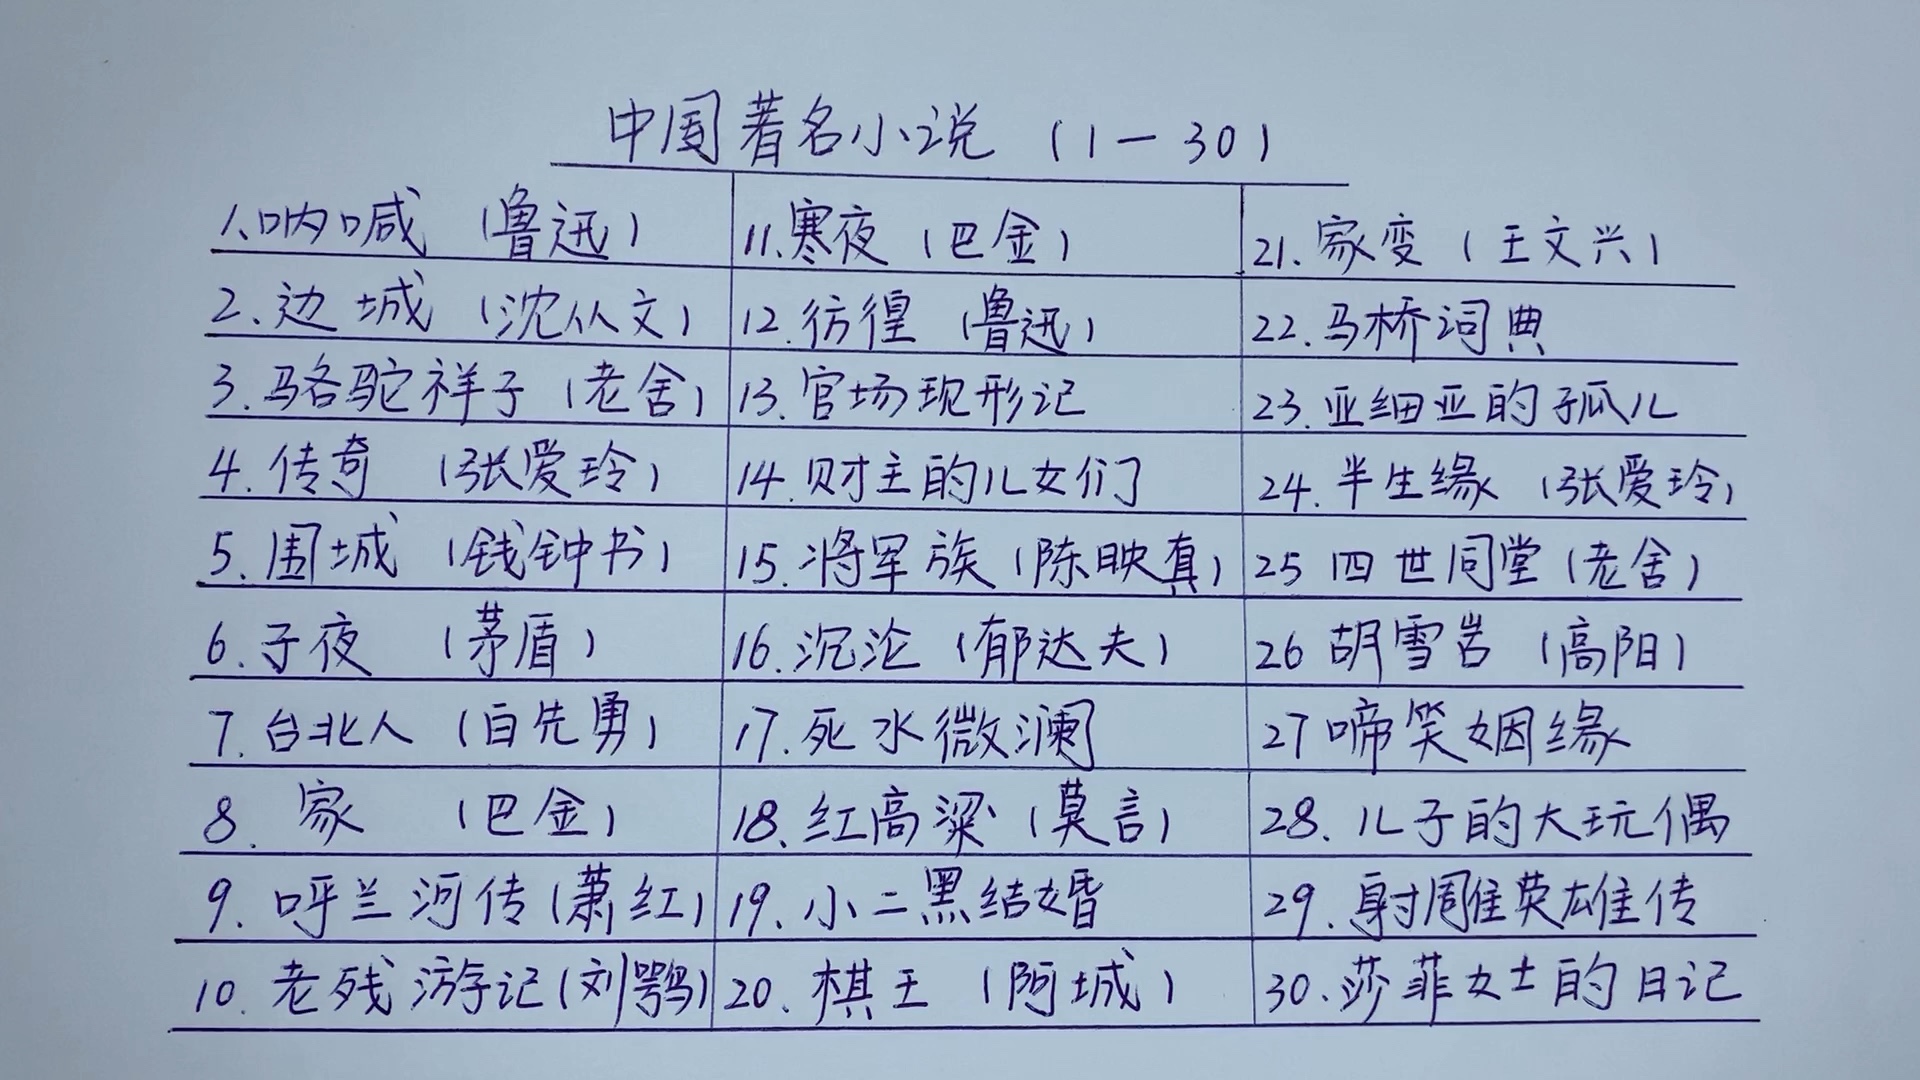 中国著名小说（1－30）
1.呐喊（鲁迅）
2.边城（沈从文）
3.骆驼祥子（老舍）
4.传奇（张爱玲）
5.围城（钱钟书）
6.子夜（茅盾）
7.台北人（白先勇）
8.家（巴金）
9.呼兰河传（萧红）
10.老残游记（刘鹗）
11.寒夜（巴金）
12.彷徨（鲁迅）
13.官场现形记
14.财主的儿女们
15.将军族（陈映真）
16.沉沦（郁达夫）
17.死水微澜
18.红高粱（莫言）
19.小二黑结婚
20.棋王（阿城）
21.家变（王文兴）
22.马桥词典
23.亚细亚的孤儿
24.半生缘（张爱玲）
25 四世同堂（老舍）
26 胡雪岩（高阳）
27 啼笑姻缘
28.儿子的大玩偶
29.射雕英雄传
30.莎菲女士的日记